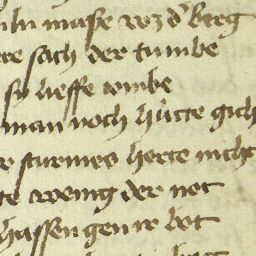 in maße vor d' berg
re sach der tumbe
sy lieffe vmbe
man noch hütte gich
r sturmes herte nicht
te wenig der not
hassen gen ir bot